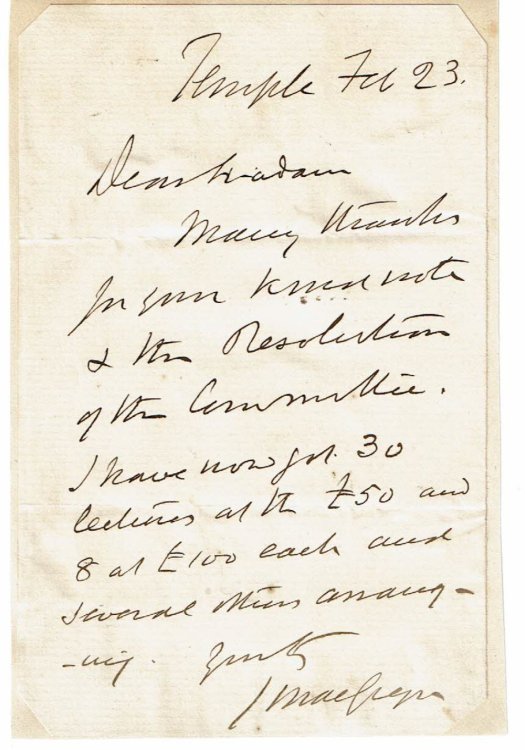 Temple Feb 23.
Dear Madam
Many thanks
for your kind note
& the Resolution
of the Committee.
I have now got 30
lectures at the £50 and
8 at £100 each and
several others arrang-
-ing. Yours tly
J MacGregor